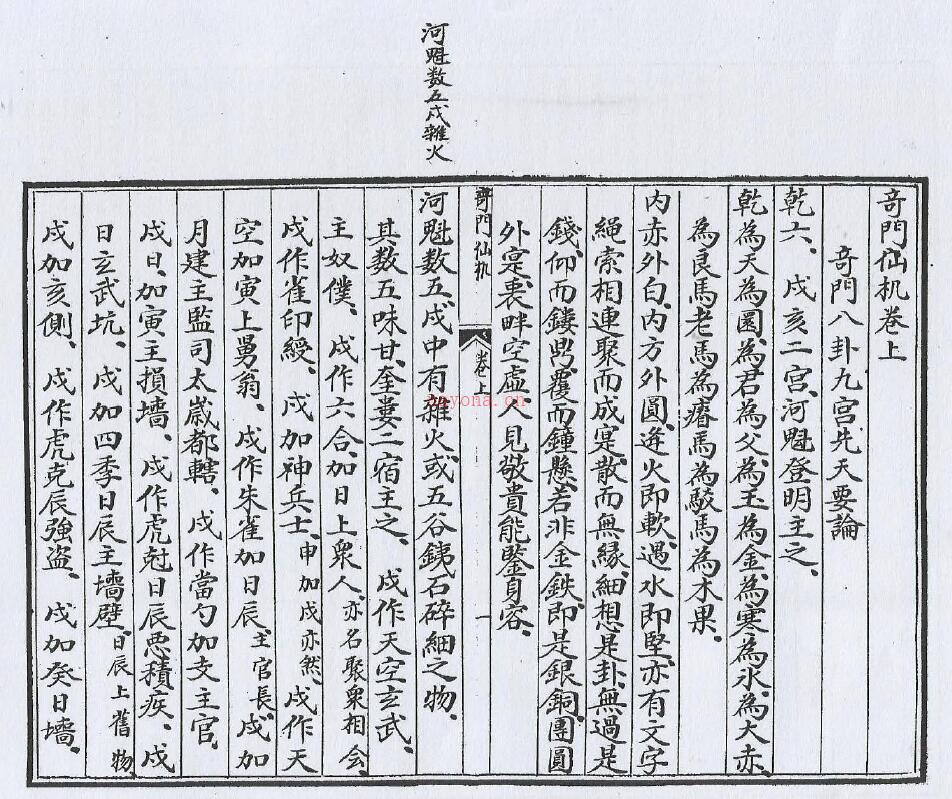 河魁数五戌雜火
奇門仙机卷上
奇門八卦九宮先天要論
乾六、戌亥二宮、河魁登明主之、
乾為天、為圜、為君、為父、為玉、為金、為寒、為氷、為大赤、
為良馬、老馬、為瘠馬、為駁馬、為木果、
内赤外白、内方外圓、近火即軟、遇水即堅、亦有文字
繩索相連、聚而成寔、散而無緣、細想是卦、無過是
錢、仰而鏤、覆而鐘懸、若非金鉄、即是銀銅、團圓
外寔裹畔空虛、人見敬貴、能鑒身容、
奇門仙机
卷上
一
河魁数五、戌中有雜火、或五谷銕石碎細之物、
其数五、味甘、奎婁二宿主之、戌作天空玄武、
主奴僕、戌作六合、加日上衆人、亦名聚衆相会、
戌作雀印綬、戌加神兵士、申加戌亦然、戌作天
空加寅上舅翁、戌作朱雀加日辰、主官長、戌加
月建主監司、太歲都轄、戌作當勺加支主官、
戌日、加寅主損墻、戌作虎尅日辰悪積疾、戌
日玄武坑、戌加四季日辰主墻壁、日辰上舊物、
戌加亥側、戌作虎克辰強盗、戌加癸日墻、
nayona.cn